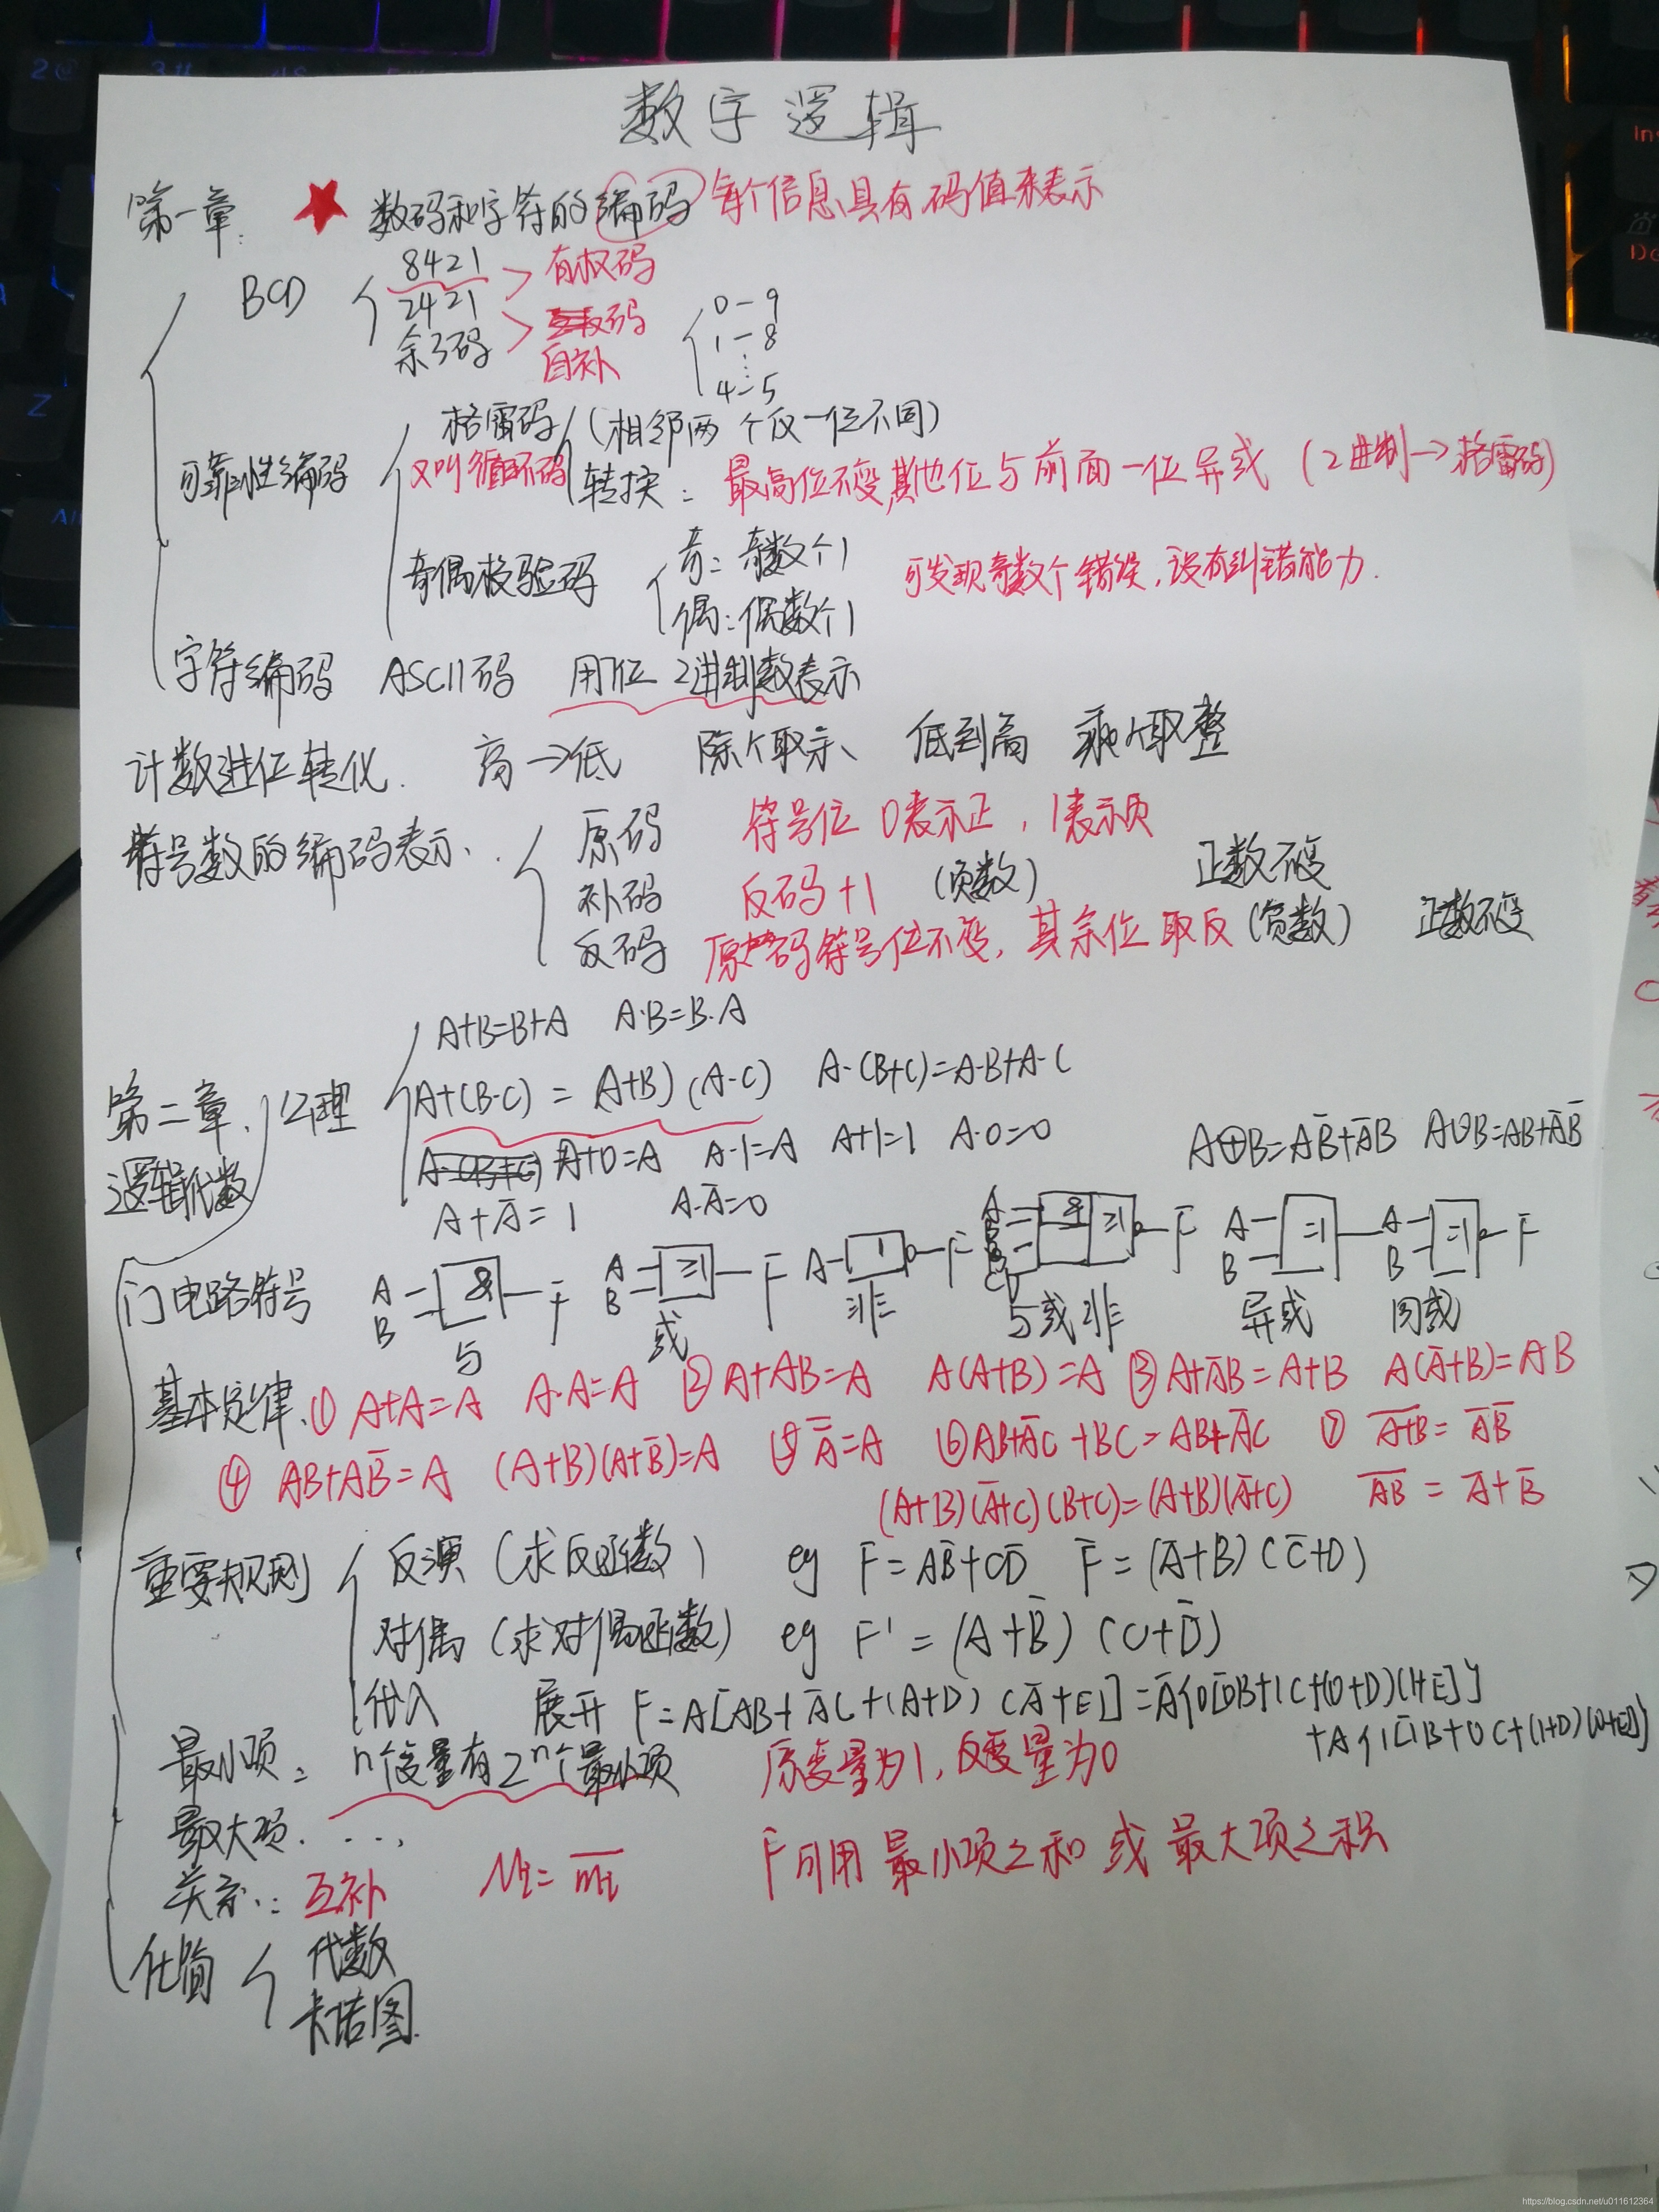 数字逻辑
第一章. ★ 数码和字符的编码 每个信息具有码值来表示
BCD 8421 有权码
2421
余3码 码 自补
0-9
1-8
⋮
4-5
可靠性编码 格雷码 (相邻两个仅一位不同)
又叫循环码 转换: 最高位不变,其他位与前面一位异或 (2进制→格雷码)
奇偶校验码 奇: 奇数个1
偶: 偶数个1
可发现奇数个错误,没有纠错能力.
字符编码 ASCII码 用7位 2进制数表示
计数进位转化. 高→低 除 取余、 低到高 乘 取整
符号数的编码表示、 原码 符号位 0表示正, 1表示负
补码 反码+1 (负数) 正数不变
反码 原码符号位不变, 其余位取反 (负数) 正数不变
第二章、逻辑代数 公理 A+B=B+A A·B=B·A
A+(B·C) = (A+B) (A·C) A·(B+C)=A·B+A·C
A+0=A A·1=A A+1=1 A·0=0 A⊕B=AB̅+A̅B A⊙B=AB+A̅B̅
A+A̅=1 A·A̅=0
门电路符号 A B & F 与 A B ≥1 F 或 A 1 F 非 & ≥1 F 与或非 A B =1 异或 A B =1 F 同或
基本定律、① A+A=A A·A=A ② A+AB=A A(A+B)=A ③ A+A̅B=A+B A(A̅+B)=AB
④ AB+AB̅=A (A+B)(A+B̅)=A ⑤ A̿=A ⑥ AB+A̅C+BC=AB+A̅C ⑦ A̅+̅B̅=A̅B̅
(A+B)(A̅+C)(B+C)=(A+B)(A̅+C) A̅B̅ = A̅+B̅
重要规则 反演 (求反函数) eg F=AB̅+CD̅ F̅=(A̅+B)(C̅+D)
对偶 (求对偶函数) eg F'=(A+B̅)(C+D̅)
代入 展开 F=A[AB+A̅C+(A+D)(A̅+E)]=A̅{0[0B+1C+(0+D)(1+E)]}
+A{1[1B+0C+(1+D)(0+E)]}
最小项: n个变量有2ⁿ个最小项 原变量为1, 反变量为0
最大项. ...,
关系: 互补 Mi=m̅i̅ F可用 最小项之和 或 最大项之积
化简 代数
卡诺图.
https://blog.csdn.net/u011612364